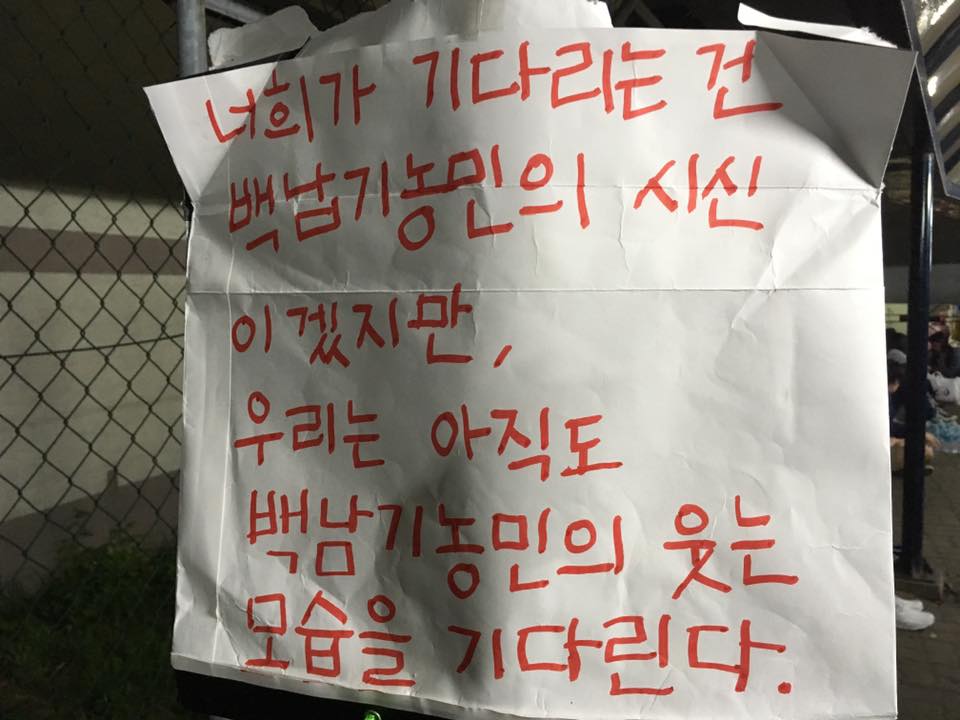 너희가 기다리는 건
백남기농민의 시신
이겠지만,
우리는 아직도
백남기농민의 웃는
모습을 기다린다.